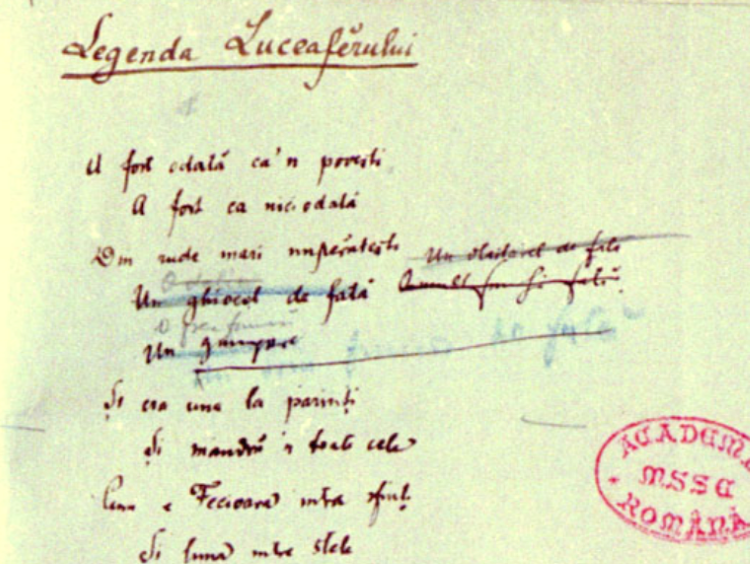 Legenda Luceafărului
A fost odată ca'n povesti
A fost ca niciodată
Din rude mari împerătești
Un vlăstărel de fată
Un ghiocel de fată
Un
Și era una la parinți
Și mandră 'n toate cele
Cum e Fecioara intre sfinți
Și luna intre stele
ACADEMIA
MSSE
ROMÂNĂ